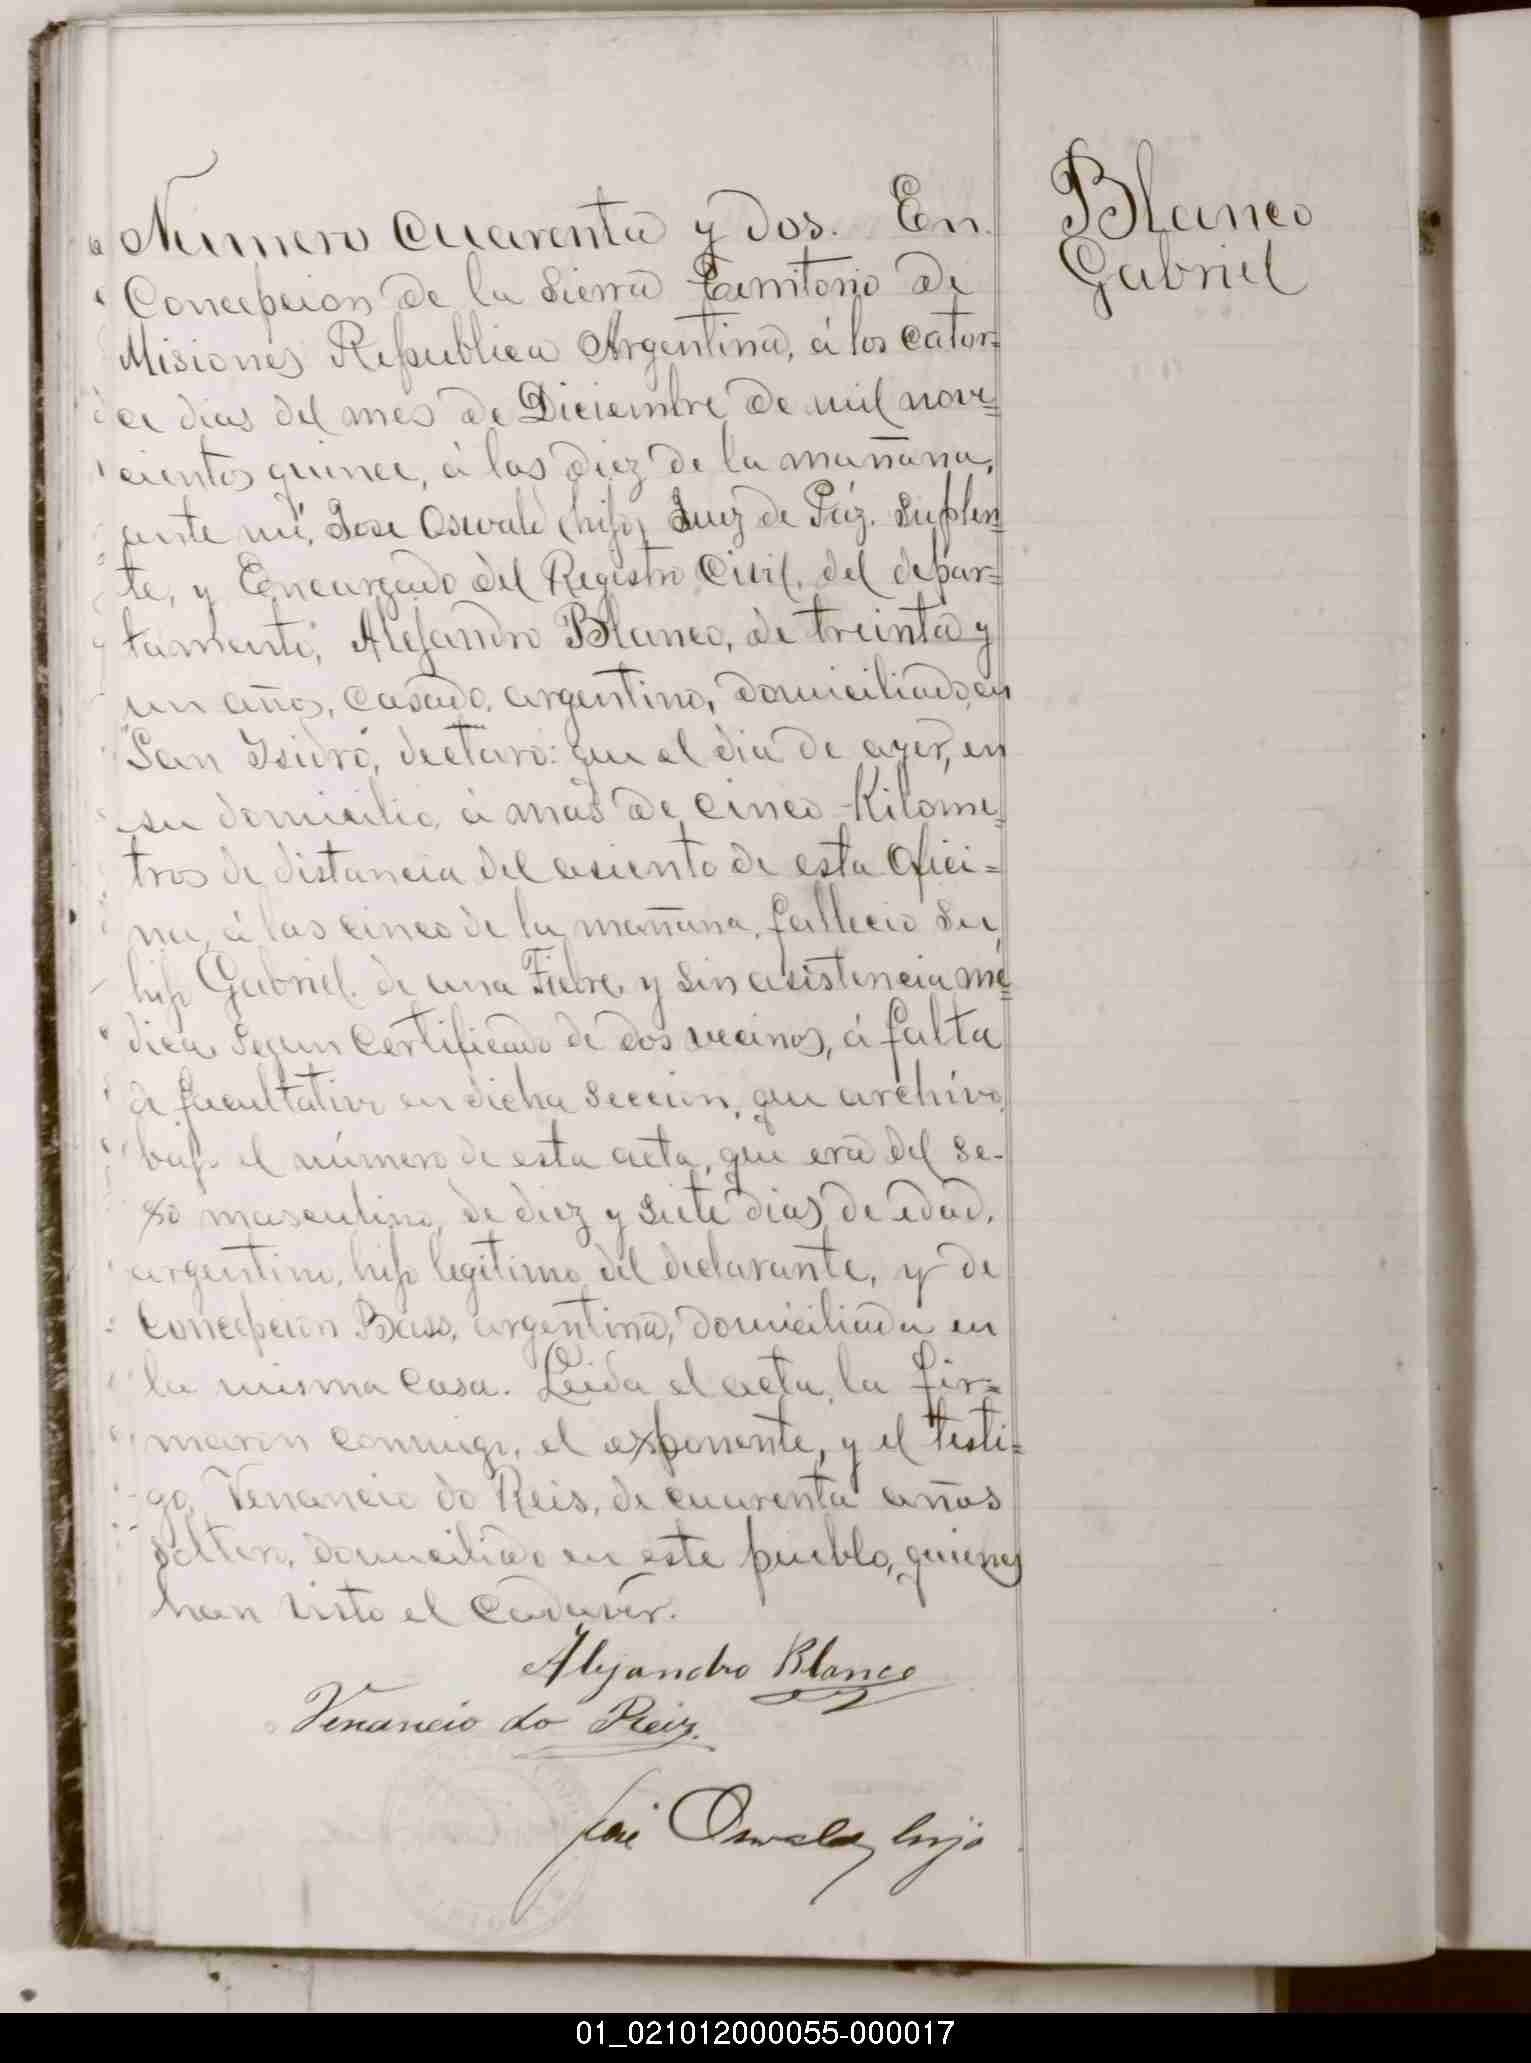 Numero cuarenta y dos. En
Blanco
Gabriel
Concepcion de la Sierra Territorio de
Misiones Republica Argentina, á los cator=
ce dias del mes de Diciembre de mil nove=
cientos quince, á las diez de la mañana,
ante mi, Jose Oswald (hijo) Juez de Páz. Suplen=
te, y Encargado del Registro Civil, del depar=
tamento; Alejandro Blanco, de treinta y
un años, casado, argentino, domiciliado en
San Isidro, declaro: que el dia de ayer, en
su domicilio, á mas de cinco Kilome=
tros de distancia del asiento de esta Ofici=
na, á las cinco de la mañana, fallecio su
hijo Gabriel, de una Fiebre y sin asistencia mé=
dica, segun certificado de dos vecinos, á falta
de facultativo en dicha seccion, que archivo
bajo el número de esta acta, que era del se-
xo masculino, de diez y siete dias de edad,
argentino, hijo legitimo del declarante, y de
Concepcion Bass, argentina, domiciliada en
la misma casa. Leida el acta, la fir=
maron conmigo, el exponente, y el testi=
go, Venancio do Reis, de cuarenta años
soltero, domiciliado en este pueblo, quienes
han visto el cadaver.
Alejandro Blanco
Venancio do Reis.
José Oswald hijo
01_021012000055-000017